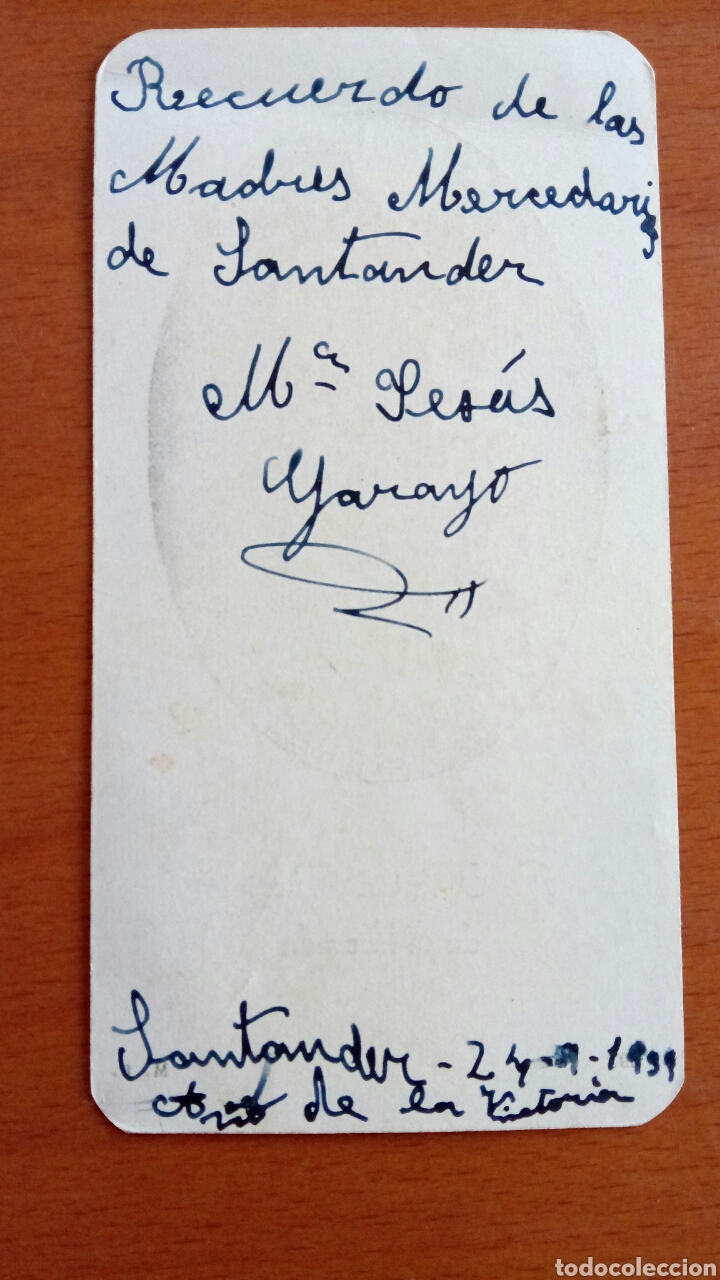 Recuerdo de las
Madres Mercedarias
de Santander
Mª Jesús
Garayo
Santander - 24 - - 1939
Año de la Victoria
todocoleccion